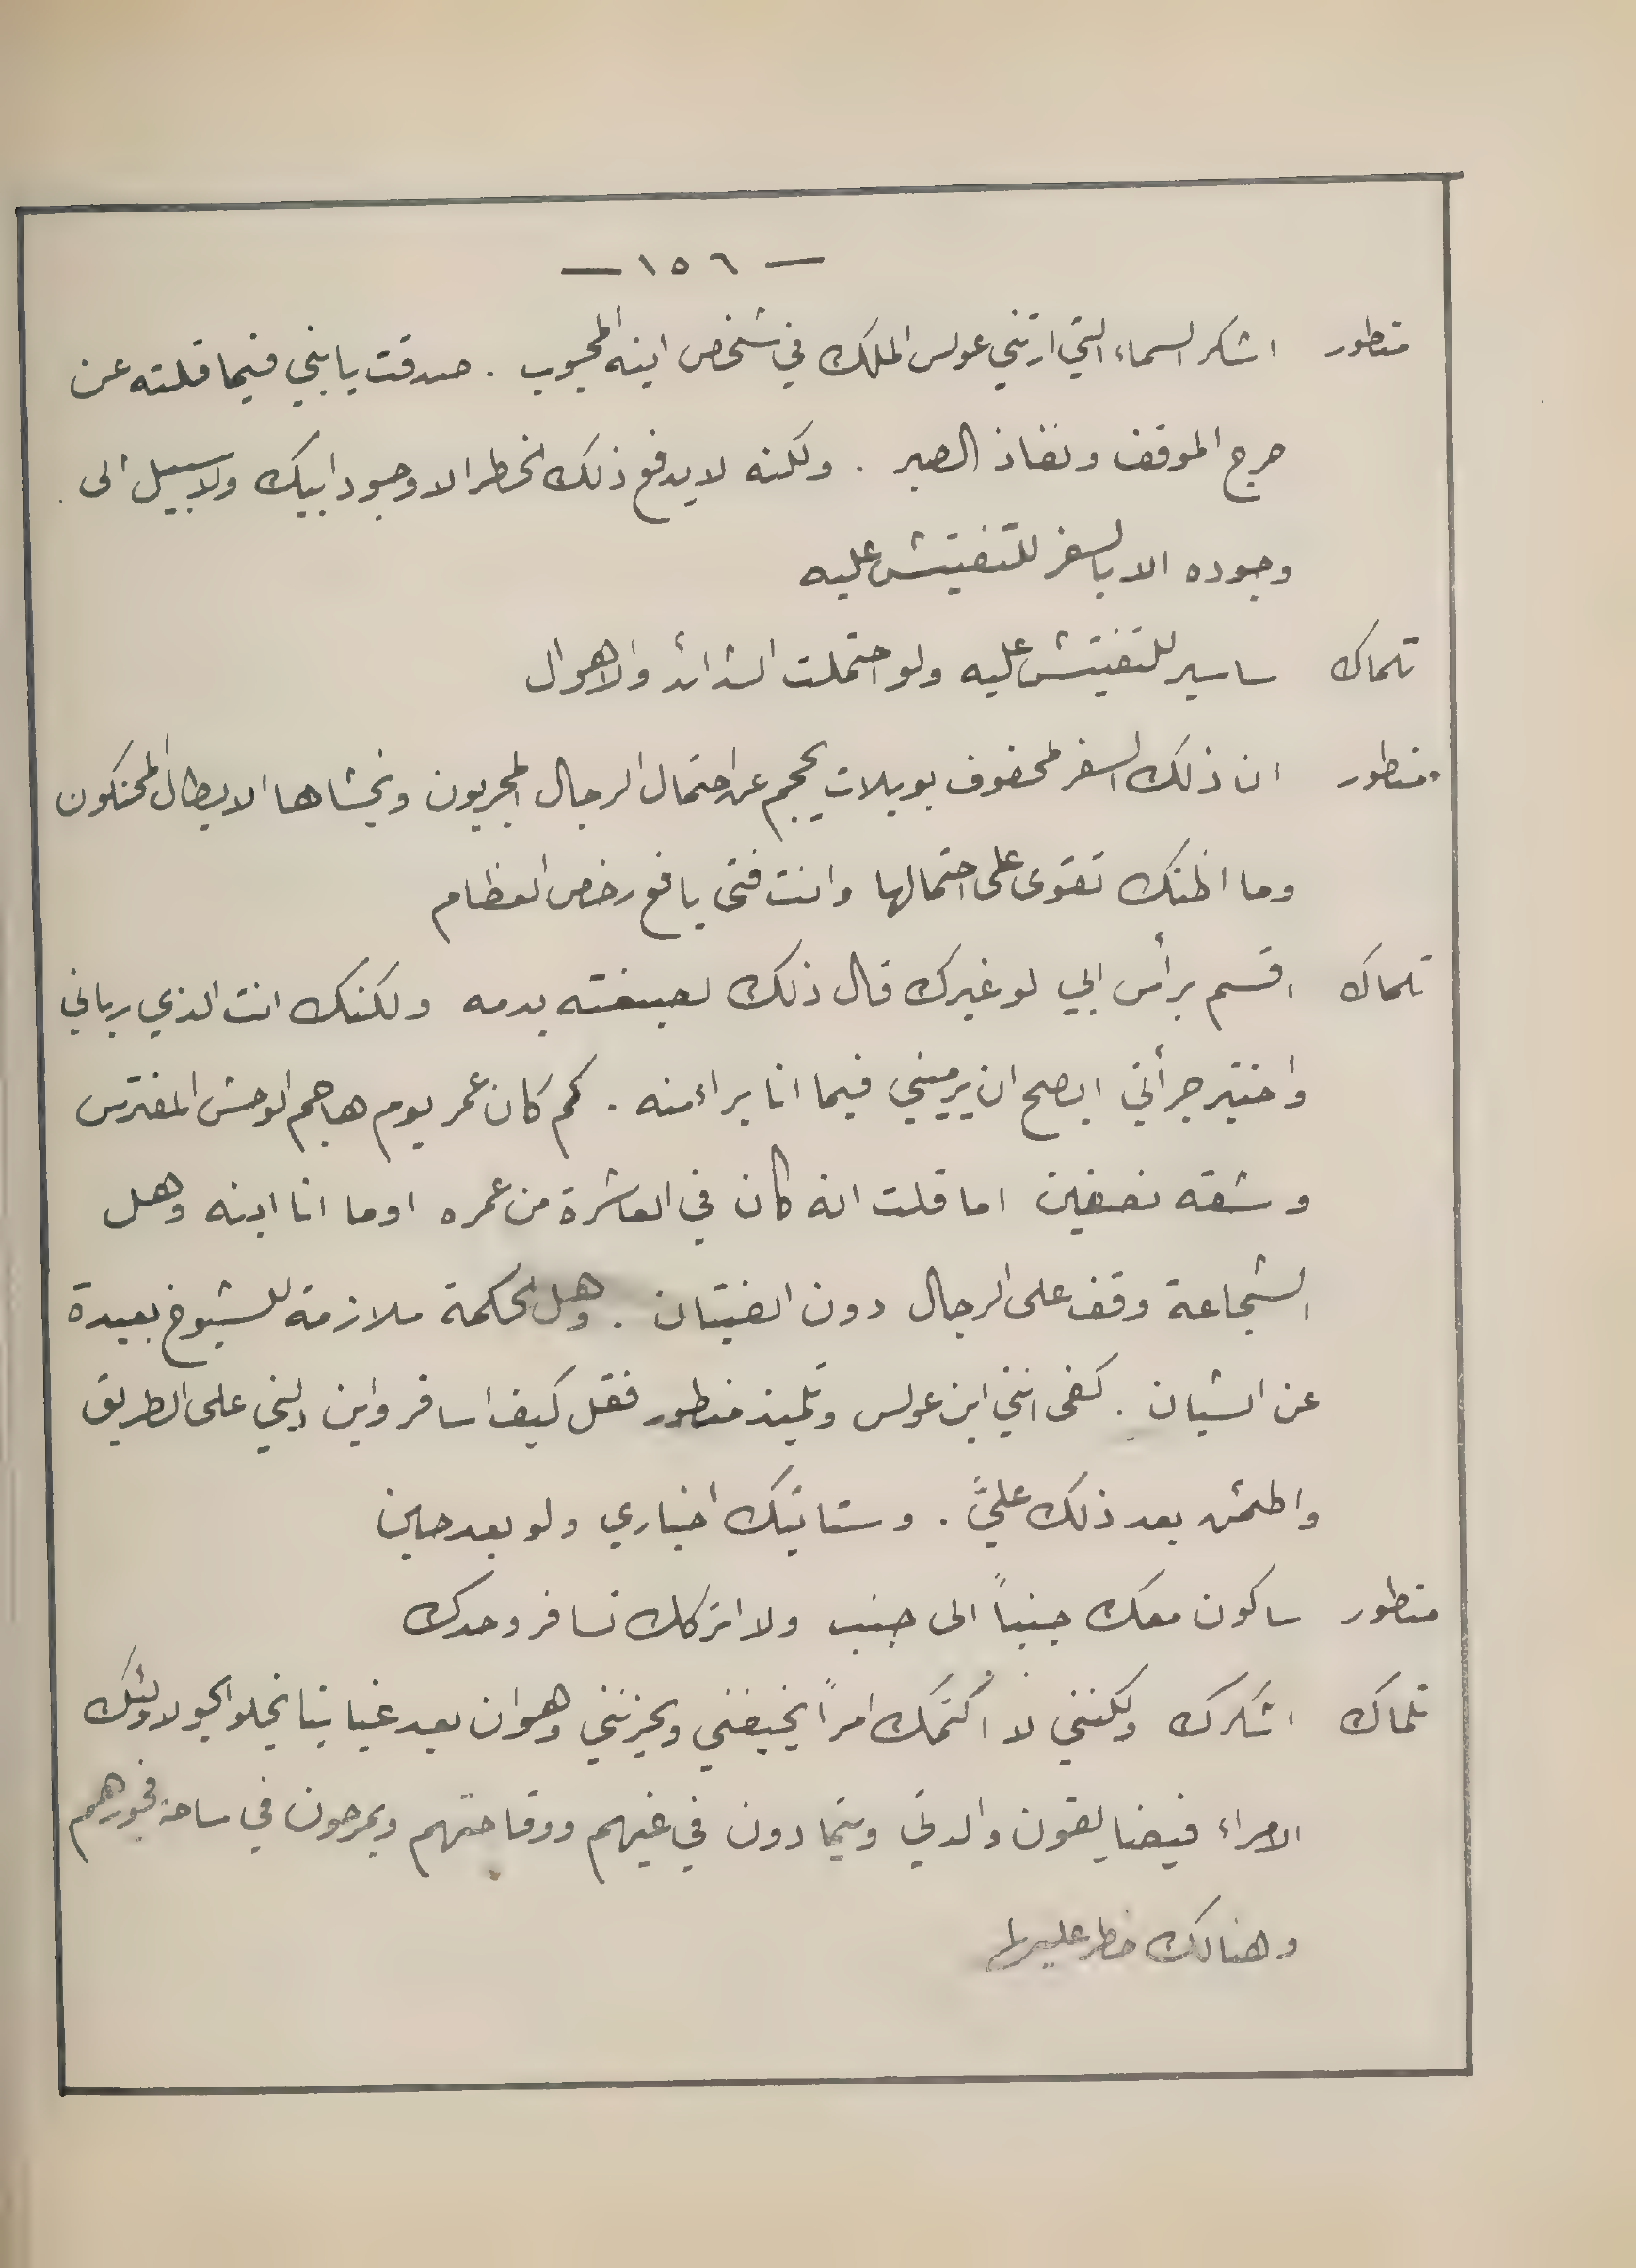 — ١٥٦ —
منطور اشكر السماء التي ارتني عولس الملك في شخص ابنه المحبوب . صدقت يا بني فيما قلته عن
حرج الموقف ونفاذ الصبر . ولكنه لا يدفع ذلك الخطر الا وجود ابيك ولا سبيل الى
وجوده الا بالسفر للتفتيش عليه
تلماك ساسير للتفتيش عليه ولو احتملت الشدائد والاهوال
منطور ان ذلك السفر لمحفوف بويلات يحجم عن احتمال الرجال المجربون ويخشاها الابطال المحنكون
وما اظنك تقوى على احتمالها وانت فتى يافع رخص العظام
تلماك اقسم برأس ابي لو غيرك قال ذلك لصبغته بدمه ولكنك انت الذي رباني
واختبر جرأتي ايصح ان يرميني فيما انا براء منه . كم كان عمر يوم هاجم الوحش المفترس
وشقه نصفين اما قلت انه كان في العاشرة من عمره اوما انا ابنه وهل
الشجاعة وقف على الرجال دون الفتيان . وهل الحكمة ملازمة للشيوخ بعيدة
عن الشبان . كفى انني ابن عولس وتلميذ منطور فقل كيف اسافر واين دلني على الطريق
واطمئن بعد ذلك عليَّ . وستاتيك اخباري ولو بعد حين
منطور ساكون معك جنباً الى جنب ولا اتركك تسافر وحدك
تلماك اشكرك ولكنني لا أكتمك امراً يخيفني ويحزنني وهو ان بعد غيابنا يخلو الجو لاولئك
الامراء فيضايقون والدتي ويتمادون في غيهم ووقاحتهم ويمرحون في ساحة فجورهم
وهنالك خطر عليها